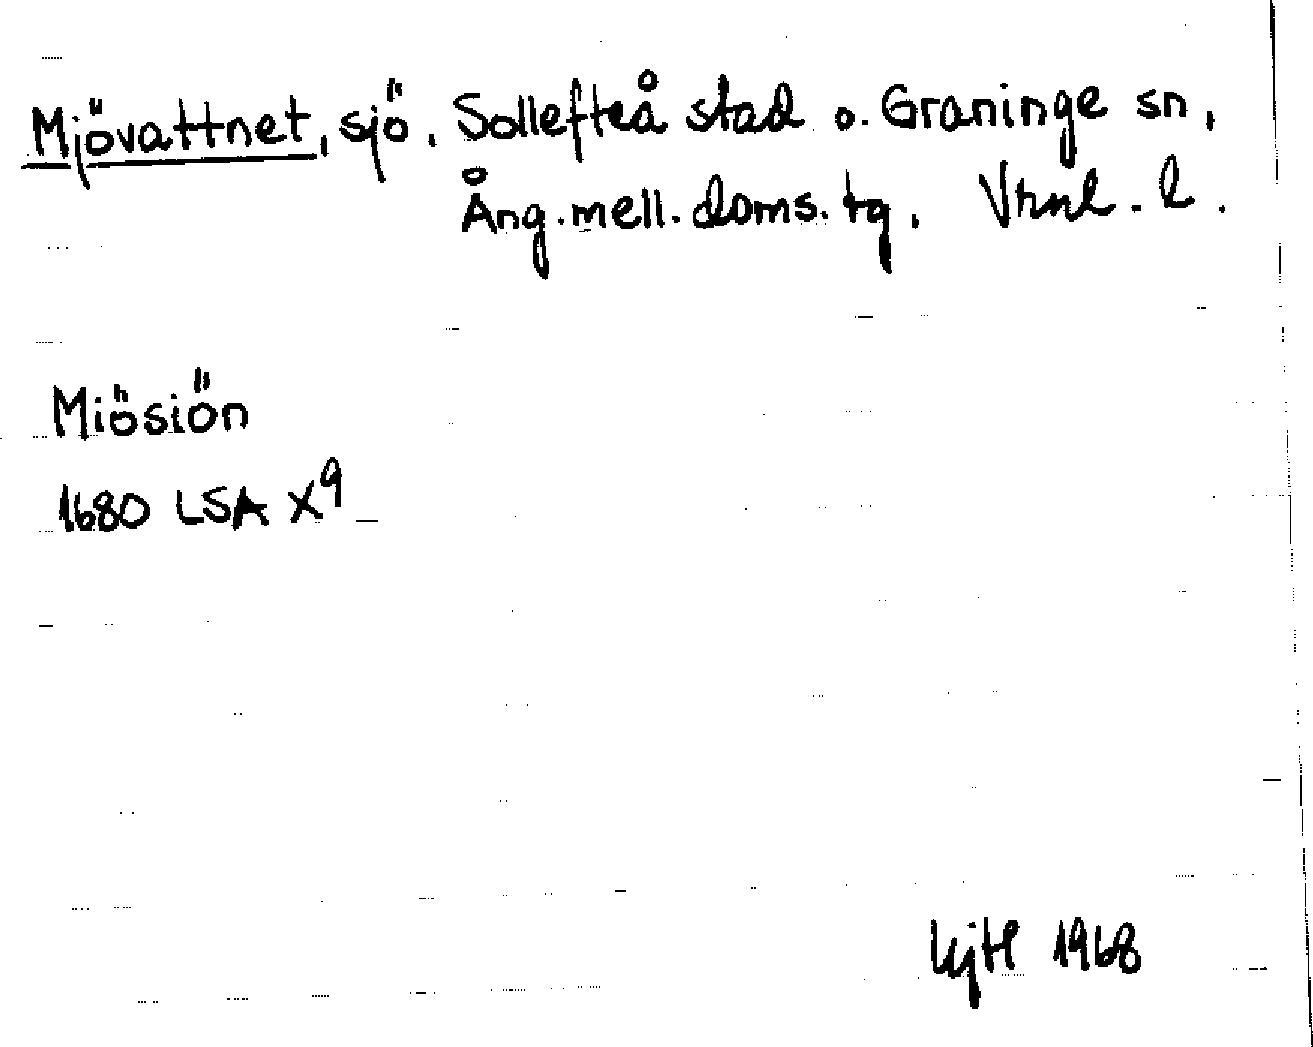 Mjövattnet, sjö. Sollefteå stad o. Graninge sn,
Ång. mell. doms. tg. Vrnl. l.
Miösiön
1680 LSA X9
1968